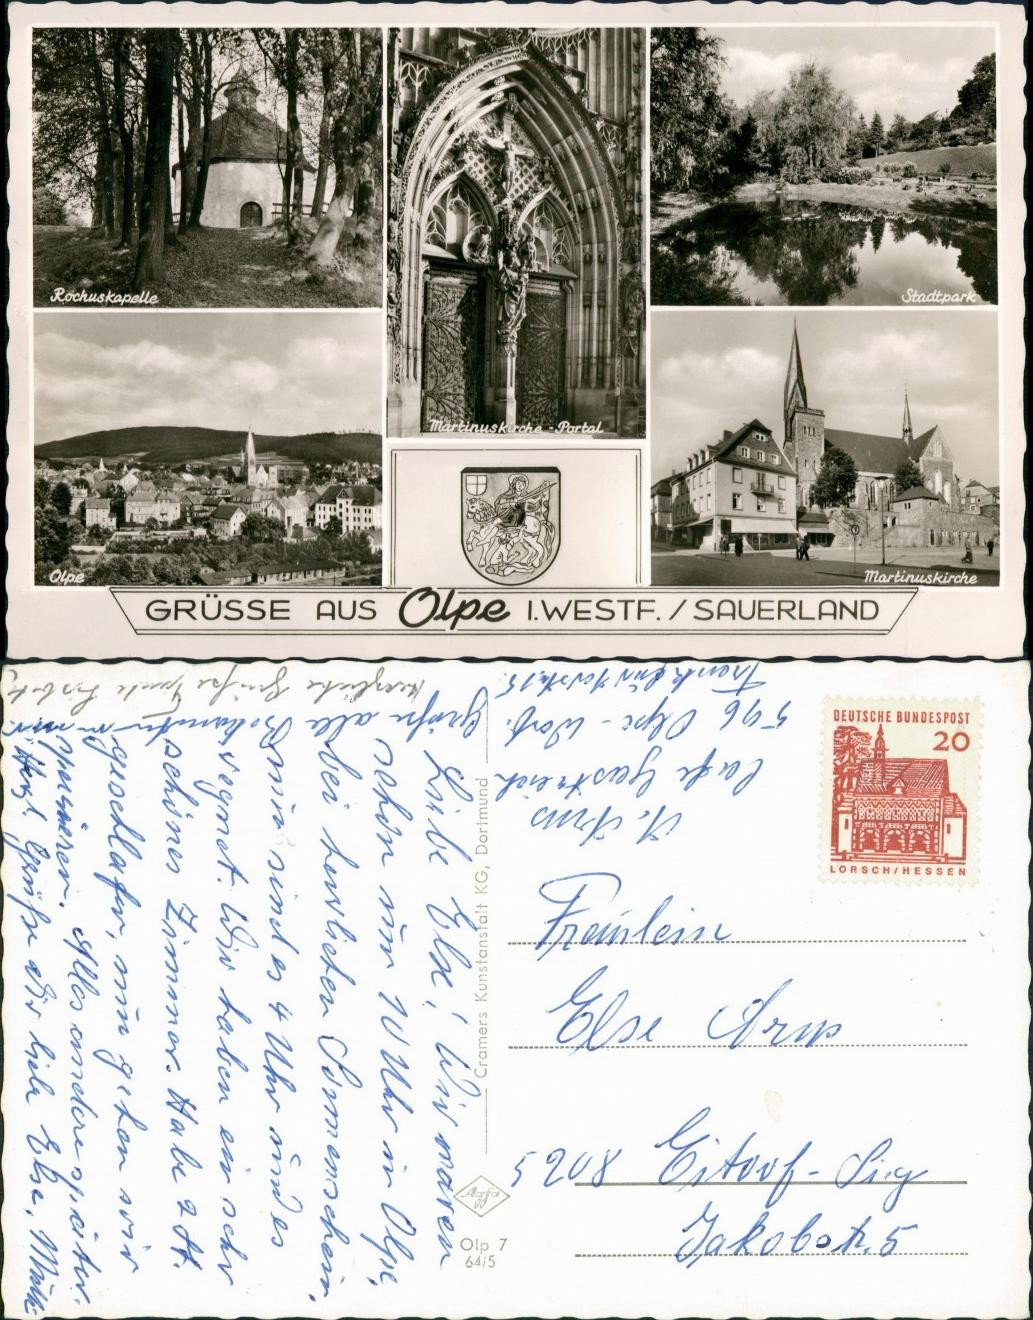 Rochuskapelle
Martinuskirche - Portal
Stadtpark
Olpe
Martinuskirche
GRÜSSE AUS Olpe I.WESTF. / SAUERLAND
DEUTSCHE BUNDESPOST
20
LORSCH/HESSEN
596 Olpe - Westf.
A. Arns
Fräulein
Else Arns
5208 Eitorf-Sieg
Jakobstr. 5
Liebe Else! Wir waren
schon um 10 Uhr in Olpe,
bei herrlichen Sonnenschein,
nun sind es 4 Uhr und es
regnet. Wir haben ein sehr
schönes Zimmer. Habe 2 St.
geschlafen, nun gehen wir
spazieren. Alles andere später.
Herzl. Grüße Dir liebe Else,
Grüße alle Bekannten
Herzliche Grüße
Cramers Kunstanstalt KG, Dortmund
Agfa
Olp 7
64/5